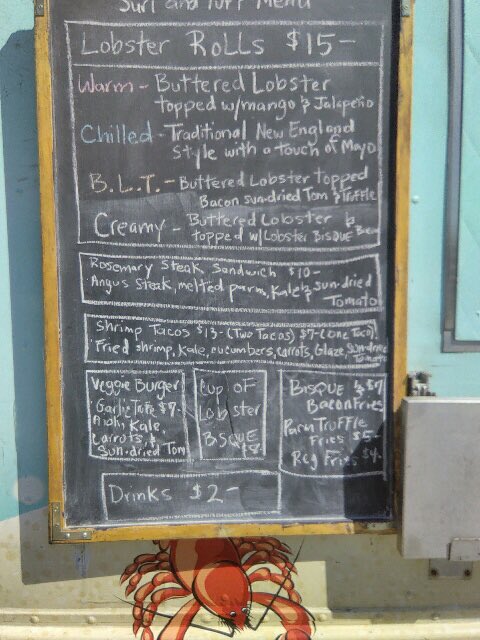 Surf and Turf Menu
Lobster Rolls $15-
Warm - Buttered Lobster
topped w/mango & Jalapeño
Chilled - Traditional New England
Style with a touch of Mayo
B.L.T. - Buttered Lobster topped
Bacon sun-dried Tom & truffle
Creamy - Buttered Lobster &
topped w/ Lobster BisQUE
Rosemary Steak Sandwich $10-
Angus Steak, melted parm, Kale & sun-dried
Tomato
Shrimp Tacos $13- (Two Tacos) $7- (One Taco)
Fried shrimp, Kale, cucumbers, carrots, Glaze, sun-dried
Tomato
Veggie Burger
Garlic $7-
Kale,
Carrots, &
Sun-dried Tom
Cup OF
Lobster
BISQUE
BISQUE & $7
Bacon Fries
Parm Truffle
Fries $5-
Reg Fries $4-
Drinks $2-